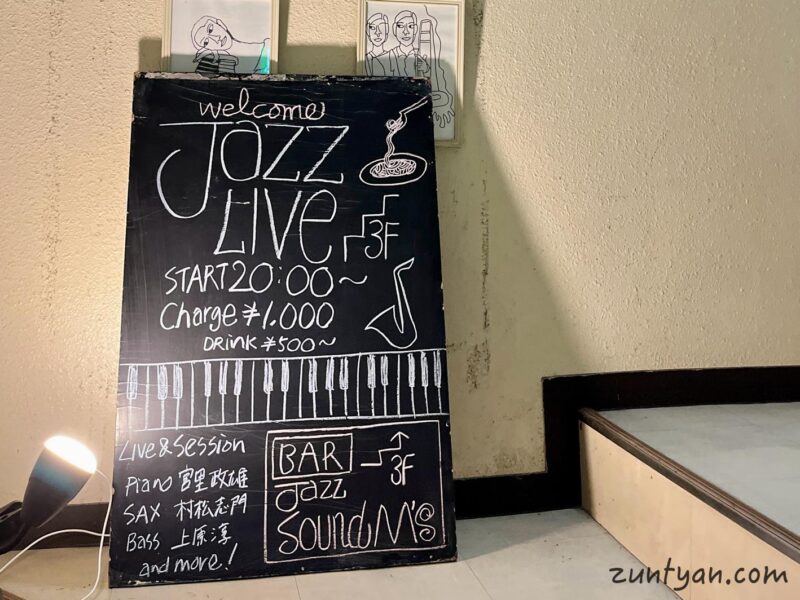 welcome
Jazz
LIVE
3F
START 20:00~
Charge ¥1.000
DRINK ¥500~
Live & Session
Piano 宮里政雄
SAX 村松志門
Bass 上原淳
and more!
BAR
3F
Jazz
Sound M's
zuntyan.com